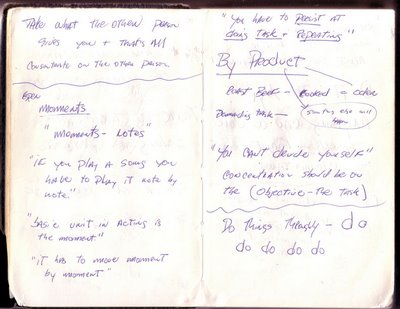 Take what the other person
gives you + that's all
Concentrate on the other person
Open
moments
"moments - notes"
"if you play a song you
have to play it note by
note."
"basic unit in acting is
the moment"
"it has to move moment
by moment"
"you have to persist at
doing task + repeating"
By Product
Roast Beef - cooked = odor
Demanding task -
something else will
happen
"you can't divide yourself"
concentration should be on
the (objective - the task)
Do things throughly - do
do do do do